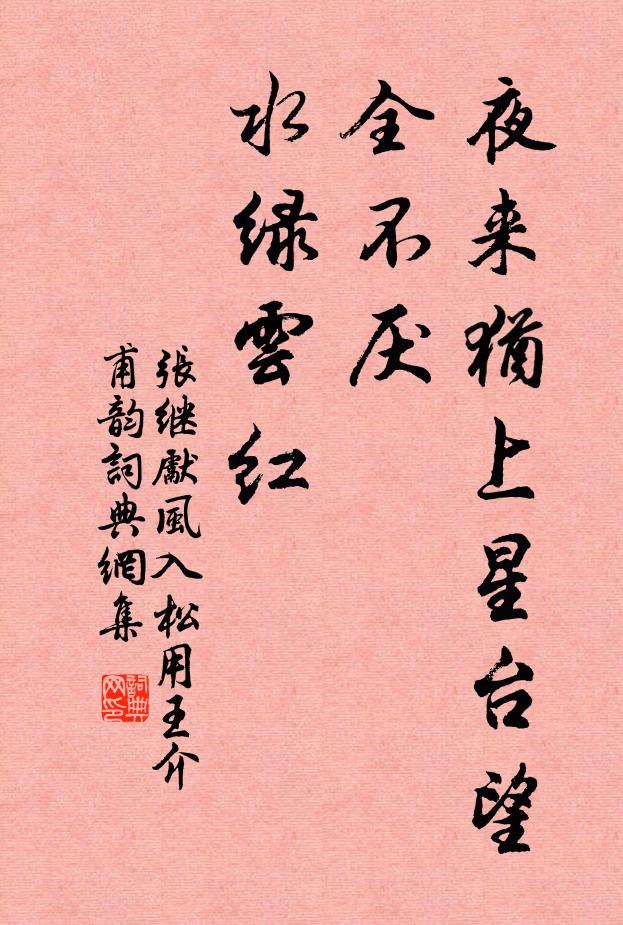 夜来猶上星台望
全不厌
水绿雲红
張继獻風入松用王介
甫韵詞典網集
詞典網印